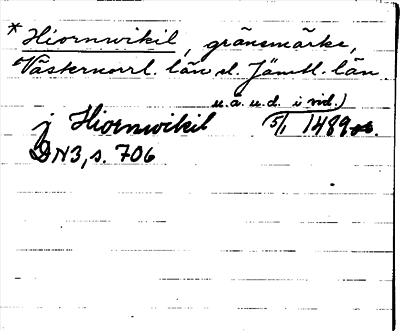 * Hiornwikil, gränsmärke,
Västernorrl. län el. Jämtl. län
u.a.u.d. i vid.)
j Hiornwikil 5/1 1489
DN3, s. 706